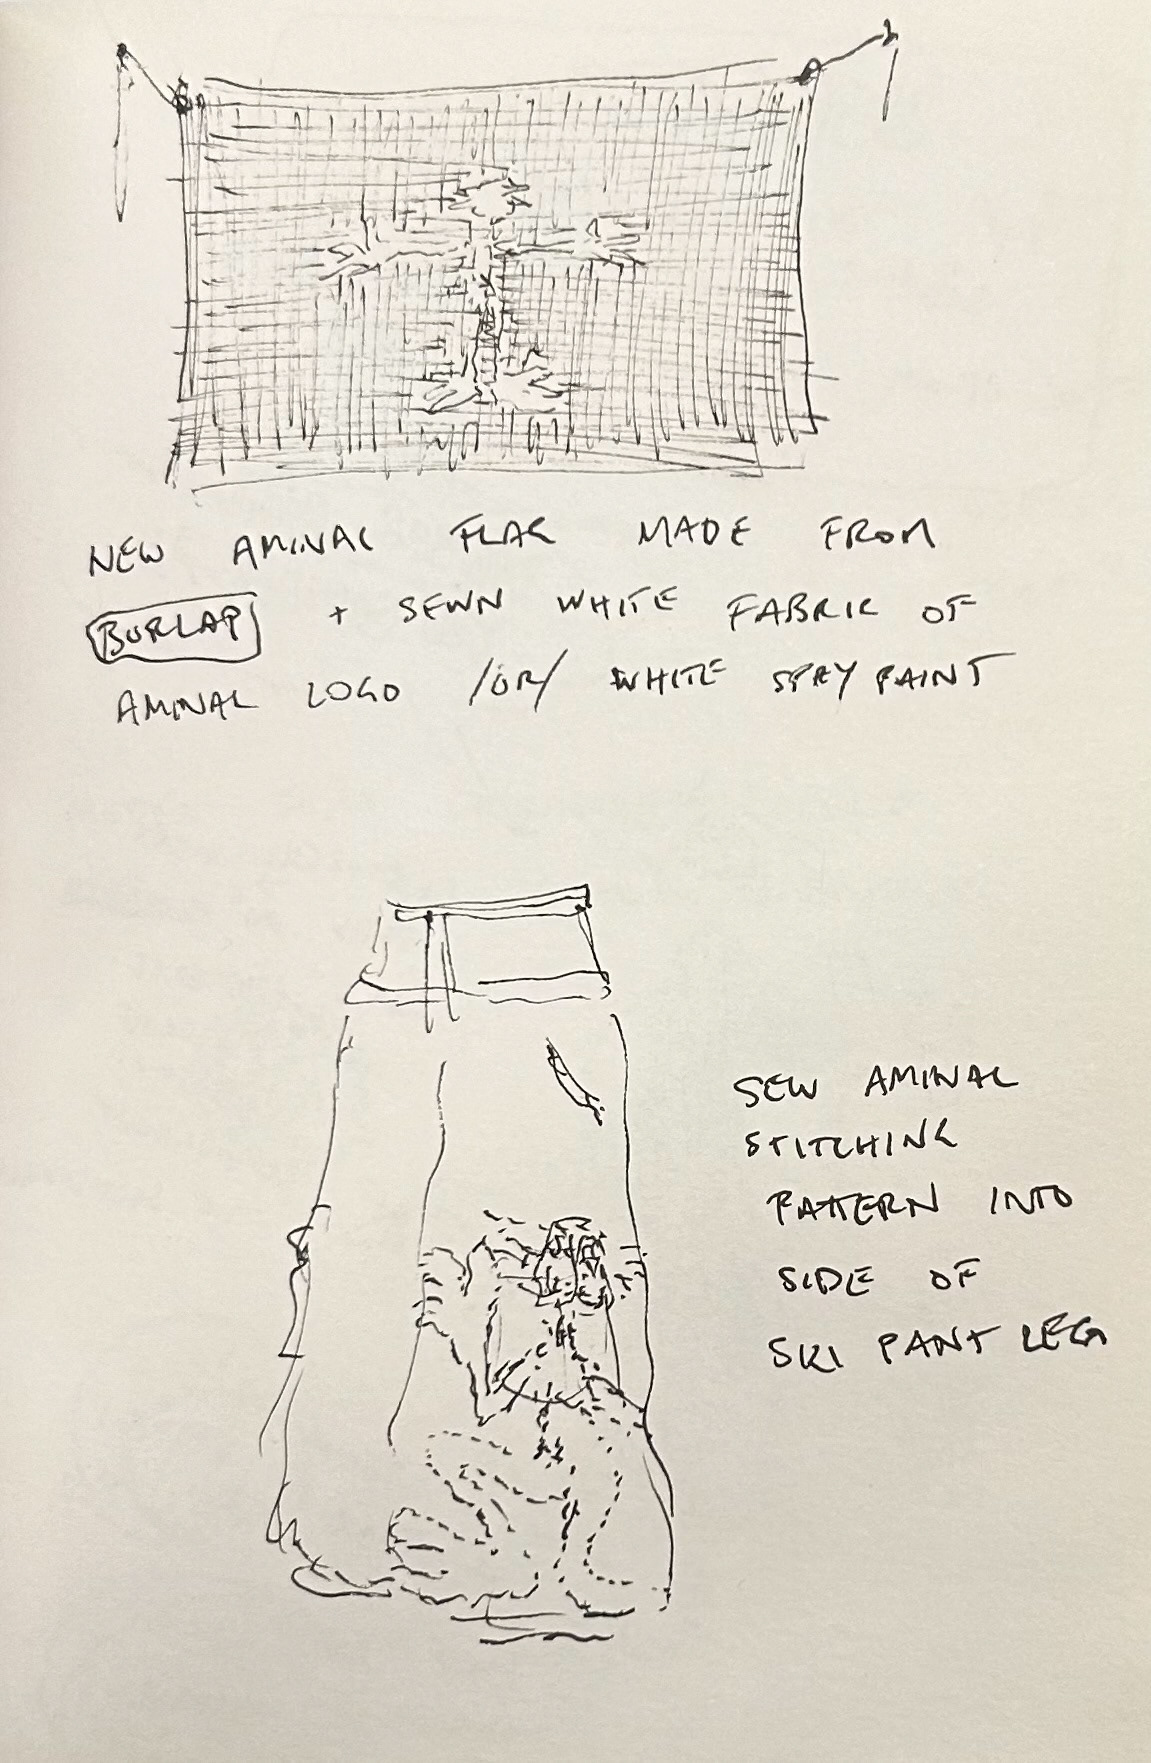 NEW AMINAL FLAG MADE FROM
BURLAP + SEWN WHITE FABRIC OF
AMINAL LOGO /OR/ WHITE SPRY PAINT
SEW AMINAL
STITCHING
PATTERN INTO
SIDE OF
SKI PANT LEG